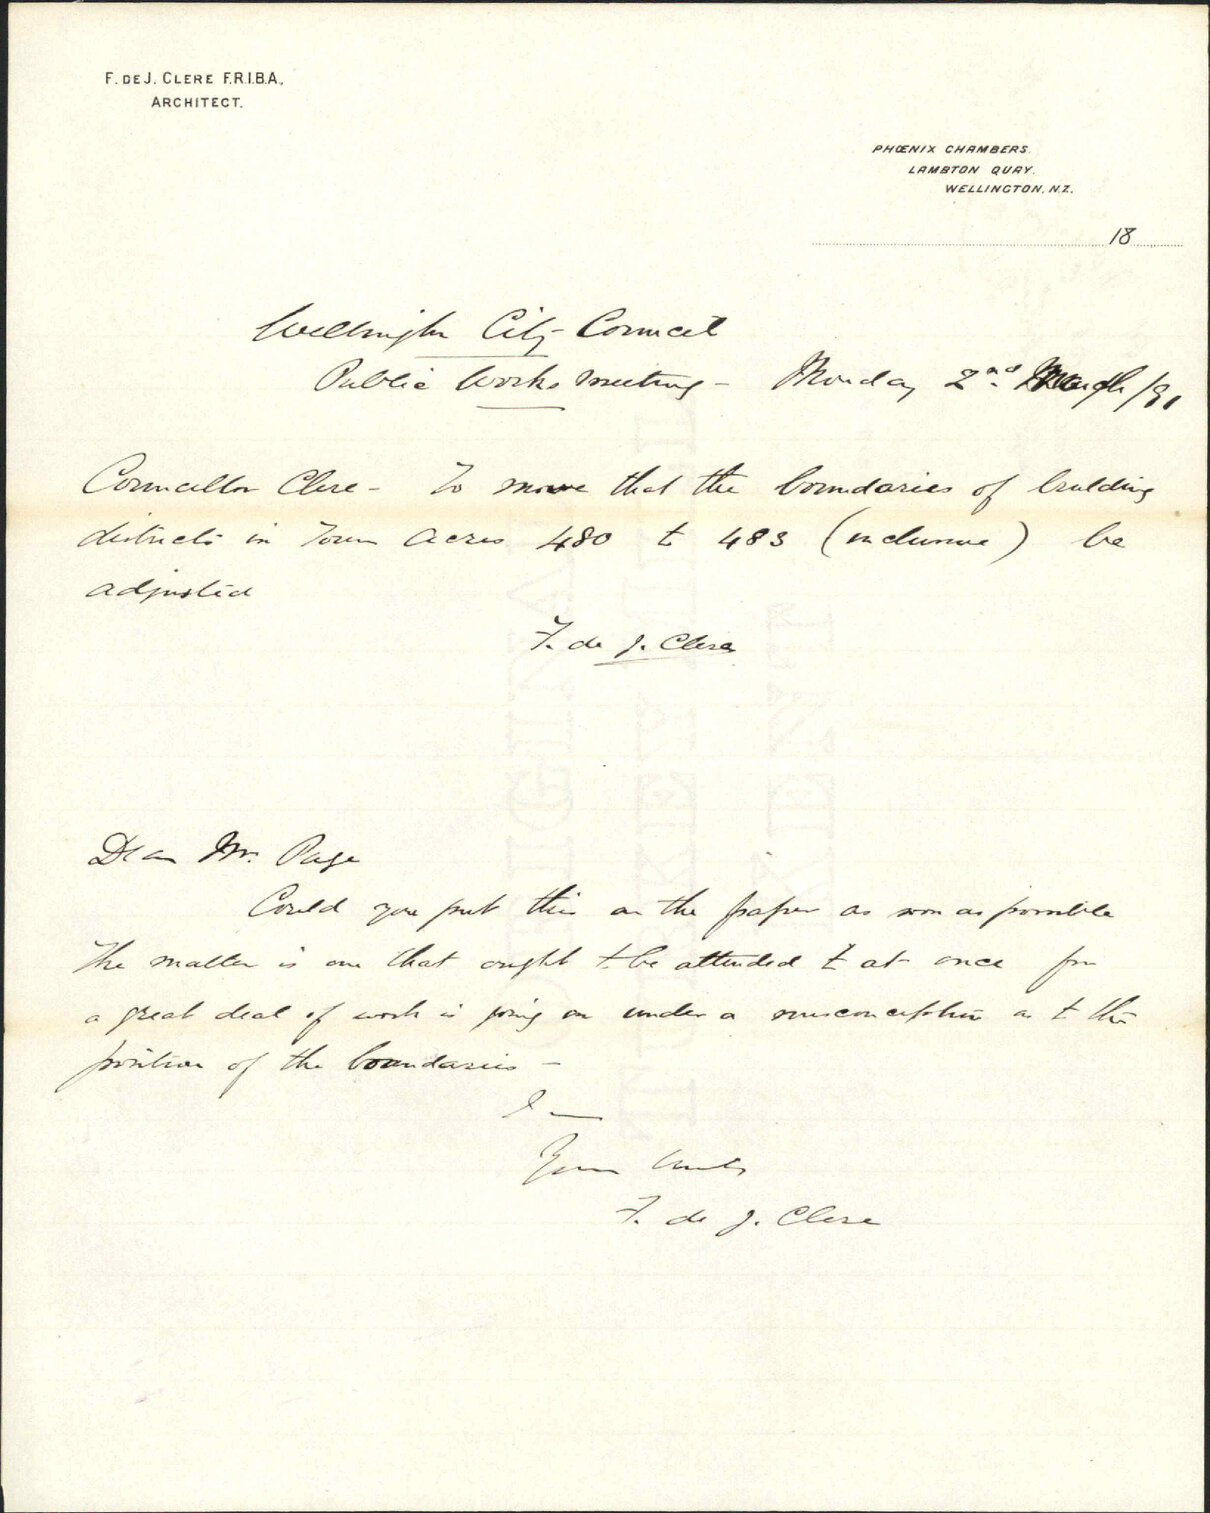 F. DE J. CLERE F.R.I.B.A.,
ARCHITECT.
PHŒNIX CHAMBERS.
LAMBTON QUAY.
WELLINGTON, N.Z.
18
Wellington City Council
Public Works Meeting - Monday 2nd March/91
Councillor Clere - To move that the boundaries of building
districts in Town Acres 480 to 483 (inclusive) be
adjusted
F. de J. Clere
Dear Mr. Page
Could you put this on the paper as soon as possible
The matter is one that ought to be attended to at once for
a great deal of work is going on under a misconception as to the
position of the boundaries -
I am
Yours truly
F. de J. Clere